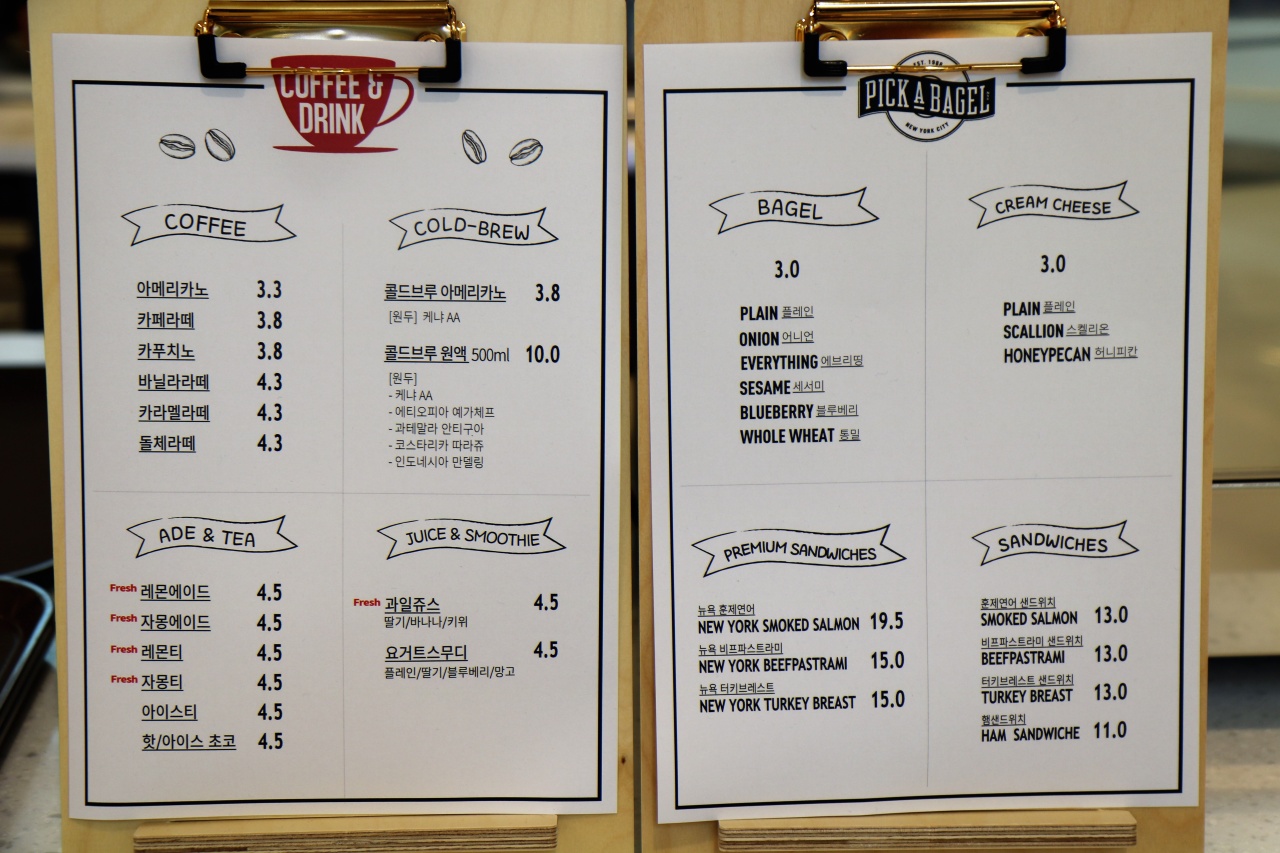 COFFEE &
DRINK
COFFEE
아메리카노 3.3
카페라떼 3.8
카푸치노 3.8
바닐라라떼 4.3
카라멜라떼 4.3
돌체라떼 4.3
COLD-BREW
콜드브루 아메리카노 3.8
[원두] 케냐 AA
콜드브루 원액 500ml 10.0
[원두]
- 케냐 AA
- 에티오피아 예가체프
- 과테말라 안티구아
- 코스타리카 따라쥬
- 인도네시아 만델링
ADE & TEA
Fresh 레몬에이드 4.5
Fresh 자몽에이드 4.5
Fresh 레몬티 4.5
Fresh 자몽티 4.5
아이스티 4.5
핫/아이스 초코 4.5
JUICE & SMOOTHIE
Fresh 과일쥬스 4.5
딸기/바나나/키위
요거트스무디 4.5
플레인/딸기/블루베리/망고
EST. 1988
PICK A BAGEL
NEW YORK CITY
BAGEL
3.0
PLAIN 플레인
ONION 어니언
EVERYTHING 에브리띵
SESAME 세서미
BLUEBERRY 블루베리
WHOLE WHEAT 통밀
CREAM CHEESE
3.0
PLAIN 플레인
SCALLION 스켈리온
HONEYPECAN 허니피칸
PREMIUM SANDWICHES
뉴욕 훈제연어
NEW YORK SMOKED SALMON 19.5
뉴욕 비프파스트라미
NEW YORK BEEFPASTRAMI 15.0
뉴욕 터키브레스트
NEW YORK TURKEY BREAST 15.0
SANDWICHES
훈제연어 샌드위치
SMOKED SALMON 13.0
비프파스트라미 샌드위치
BEEFPASTRAMI 13.0
터키브레스트 샌드위치
TURKEY BREAST 13.0
햄샌드위치
HAM SANDWICHE 11.0